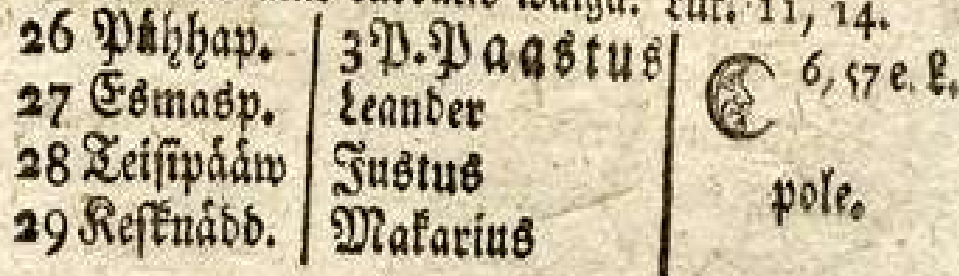 Luk. 11, 14.
26 Pühhap. 3 P. Paastus 6, 57 e. l.
27 Esmasp. Leander
28 Teisipääw Justus pole.
29 Kesknädd. Makarius